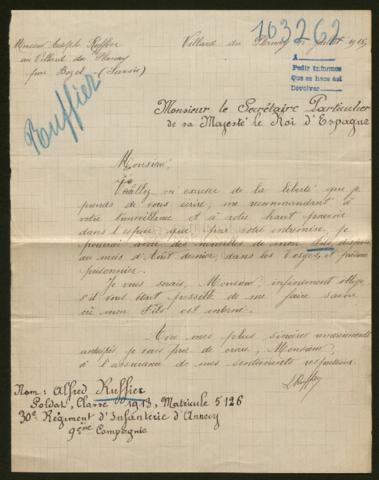 Monsieur Joseph Ruffier
au Villard du Planay
par Bozel (Savoie)
163262
Villard du Planay juillet 1915
A
Pedir informes
Que se hace así
Devolver
Ruffier
Monsieur le Secrétaire Particulier
de sa Majesté le Roi d'Espagne
Monsieur,
je
excuser de la liberté que je
prends de vous écrire, me recommandant à
votre bienveillance et à votre haut pouvoir
dans l'espoir que par votre entremise, je
pourrai avoir des nouvelles de mon fils disparu
au mois d'Août dernier, dans les Vosges, et présumé
prisonnier.
Je vous serais, Monsieur, infiniment obligé
s'il vous était possible de me faire savoir
où mon Fils est interné.
Avec mes plus sincères remerciements
anticipés je vous prie de croire, Monsieur,
à l'assurance de mes sentiments respectueux.
J. Ruffier
Nom: Alfred Ruffier
Soldat, Classe 1913, Matricule 5126
30e Régiment d'Infanterie d'Annecy
9ème Compagnie